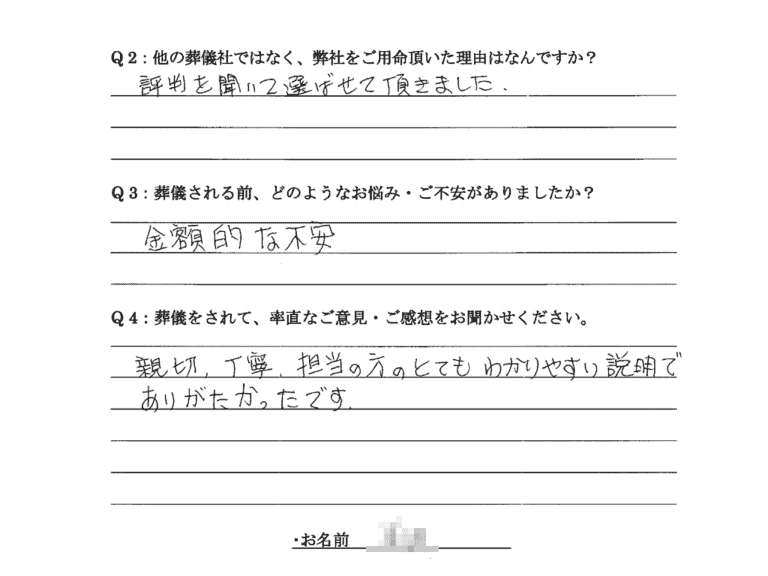 Q2：他の葬儀社ではなく、弊社をご用命頂いた理由はなんですか？
評判を聞いて選ばせて頂きました.
Q3：葬儀される前、どのようなお悩み・ご不安がありましたか？
金額的な不安
Q4：葬儀をされて、率直なご意見・ご感想をお聞かせください。
親切, 丁寧, 担当の方のとてもわかりやすい説明で
ありがたかったです.
・お名前